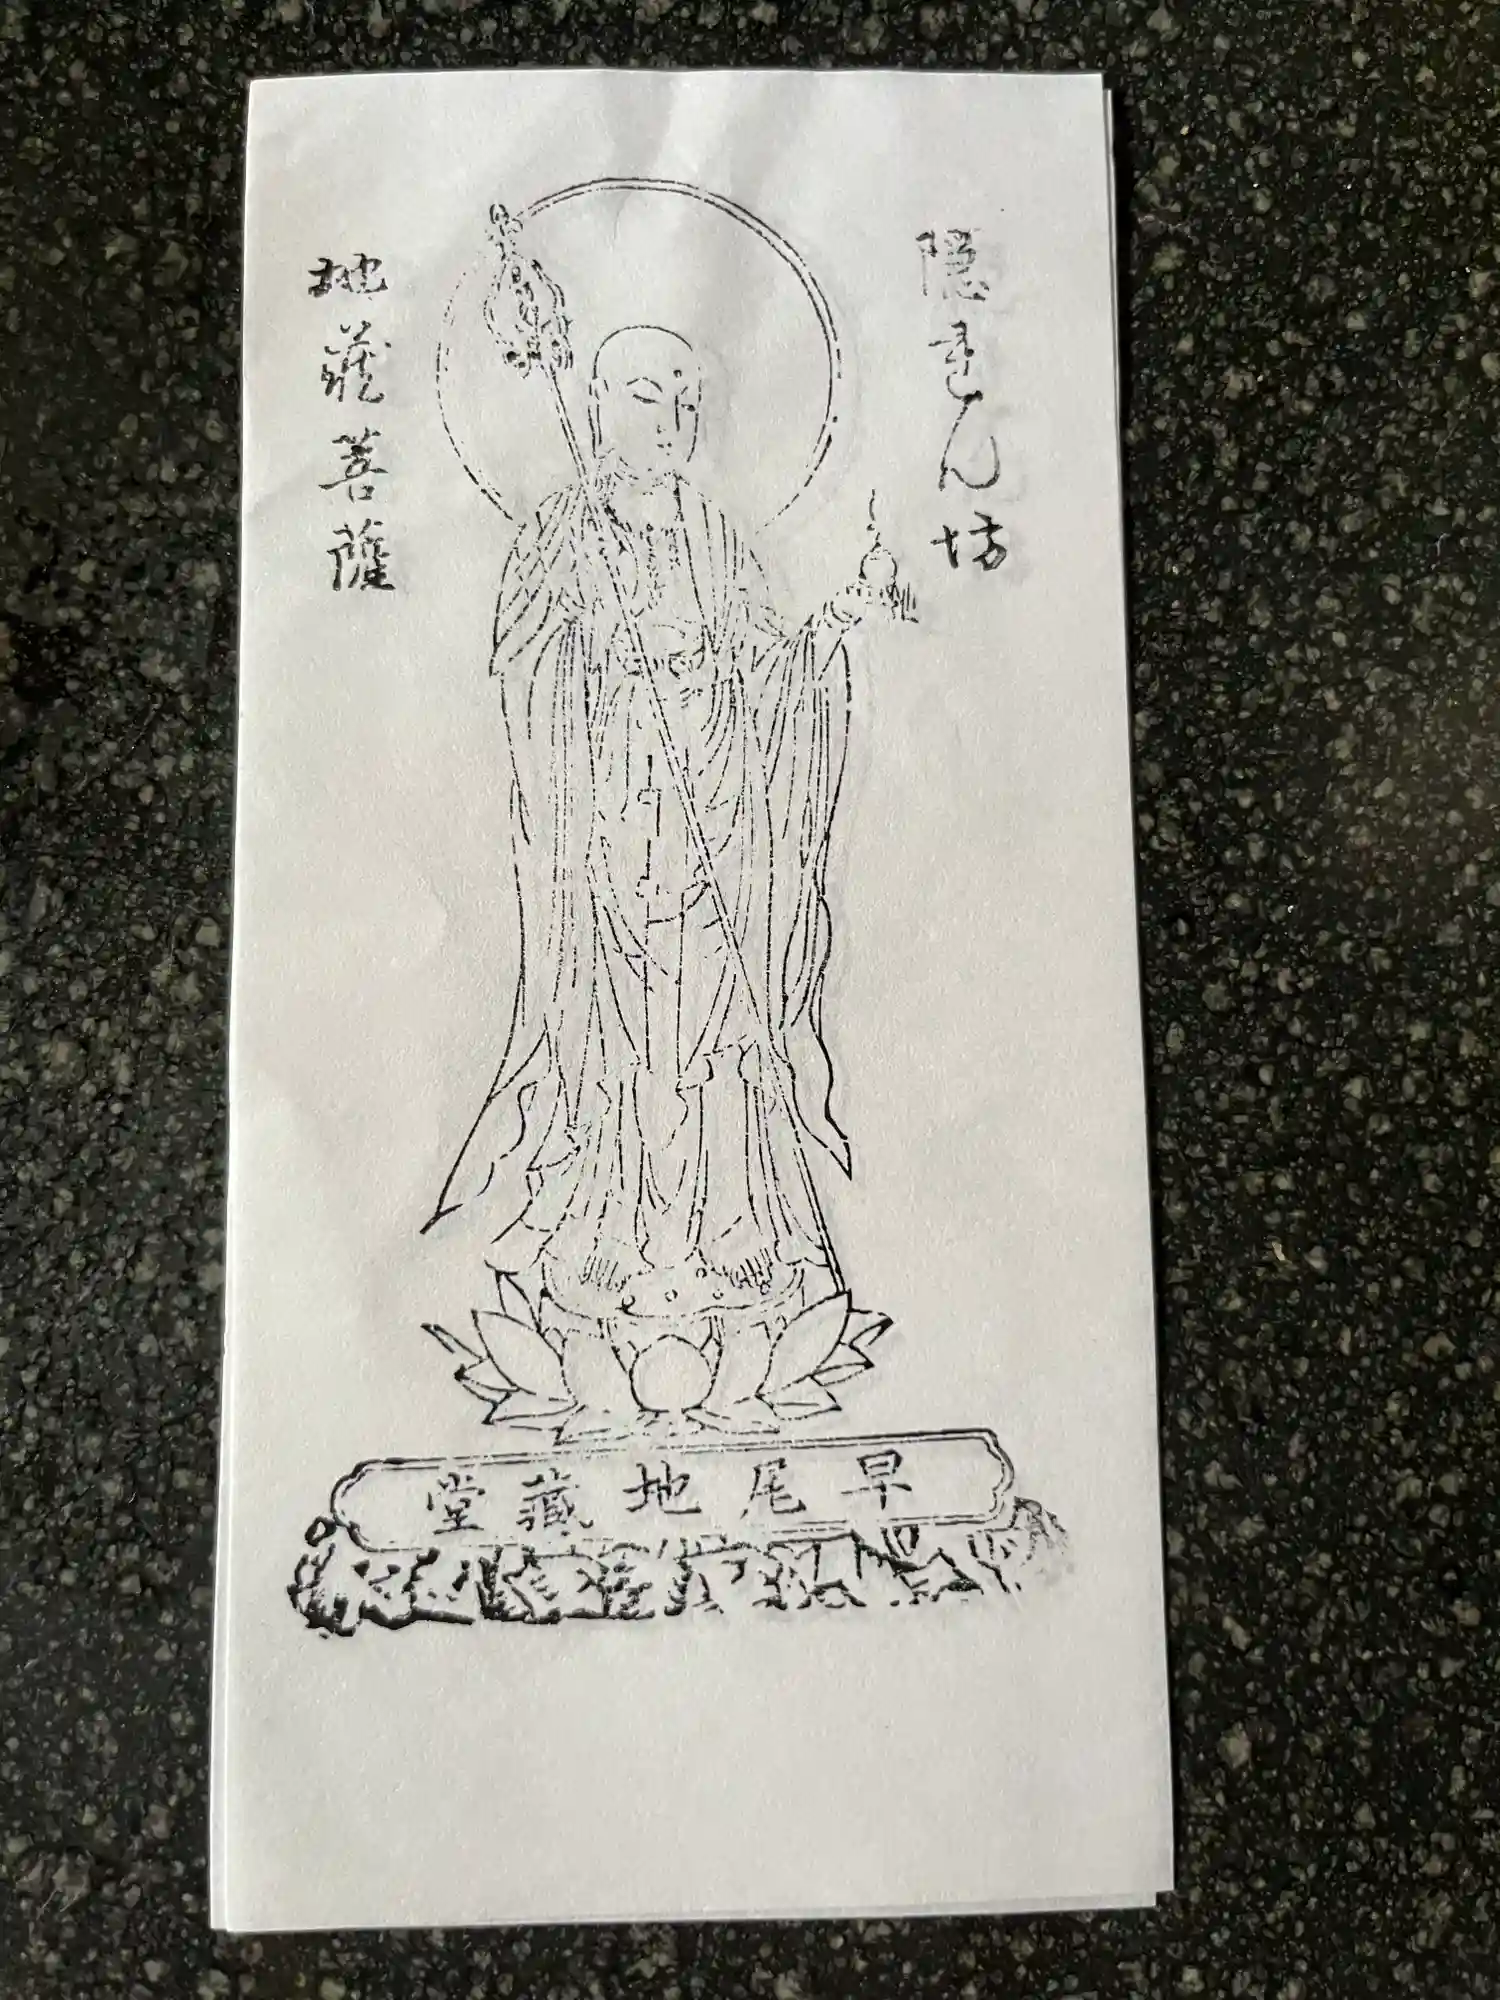 隠れん坊
地蔵菩薩
早尾地藏堂